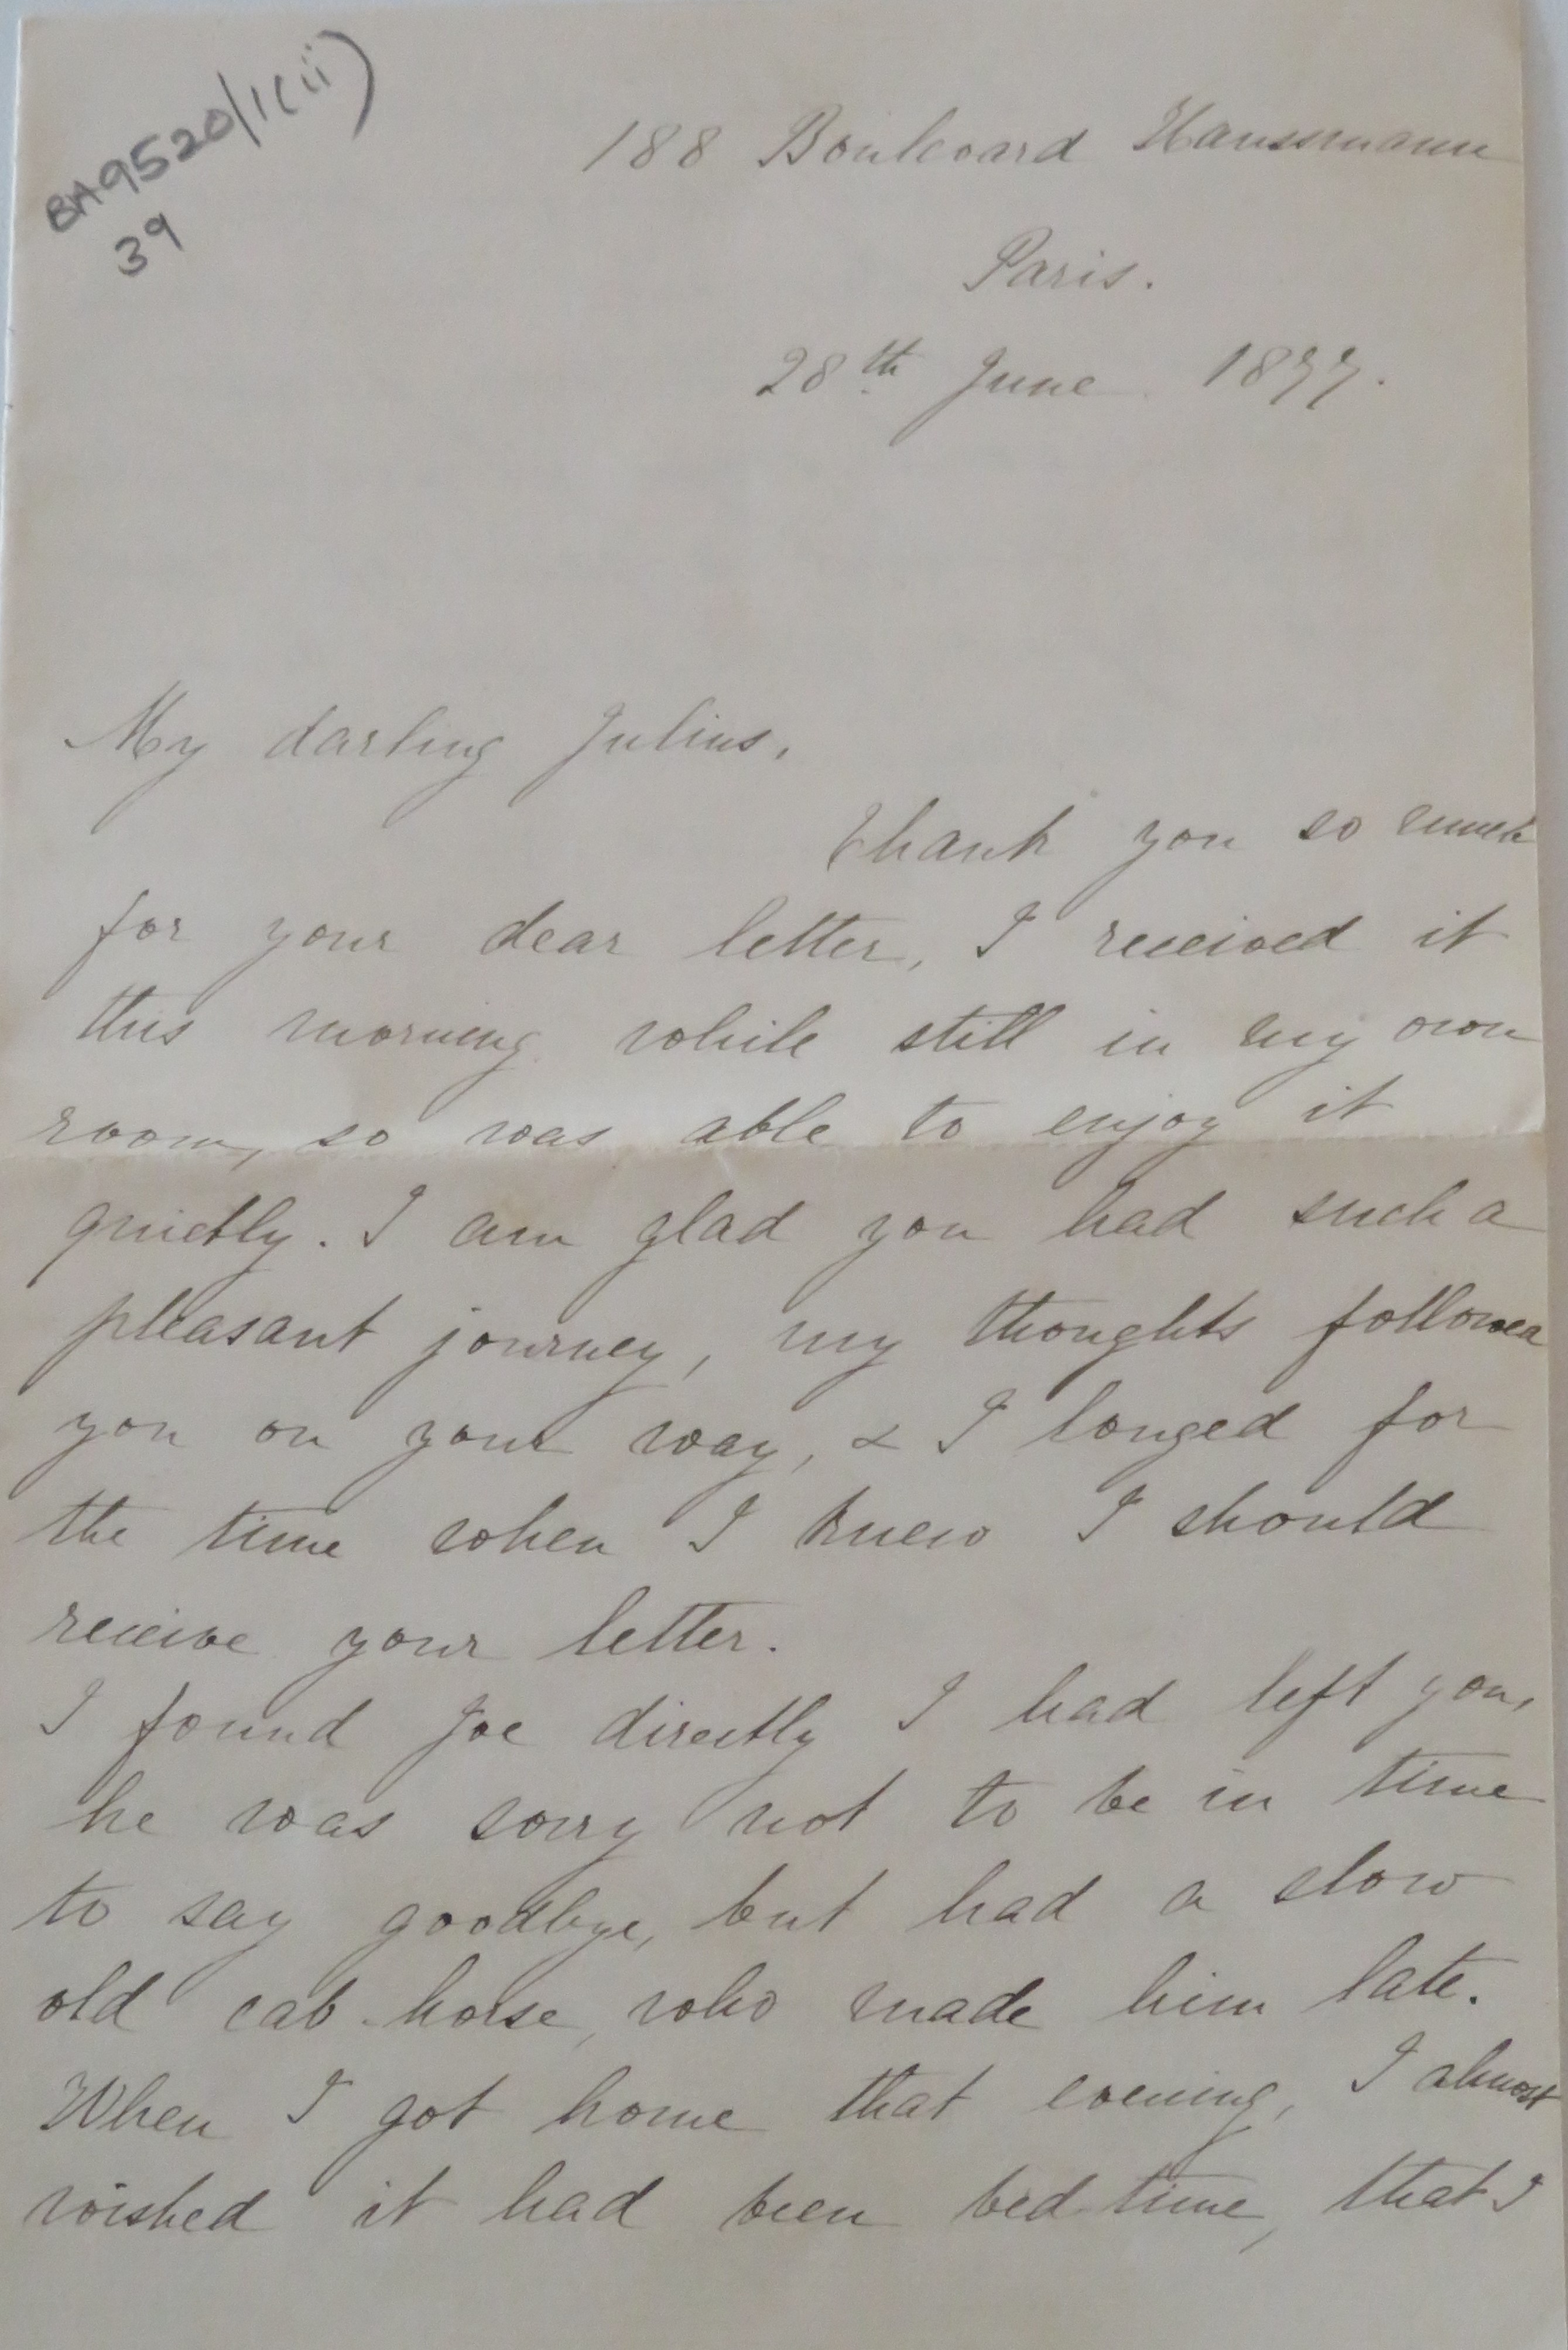 BA9520/1(ii)
39
188 Boulevard Haussmann
Paris.
28th June 1877.
My darling Julius,
Thank you so much
for your dear letter, I received it
this morning while still in my own
room, so was able to enjoy it
quietly. I am glad you had such a
pleasant journey, my thoughts followed
you on your way, & I longed for
the time when I knew I should
receive your letter.
I found Joe directly I had left you,
he was sorry not to be in time
to say goodbye, but had a slow
old cab-horse, who made him late.
When I got home that evening, I almost
wished it had been bed time, that I